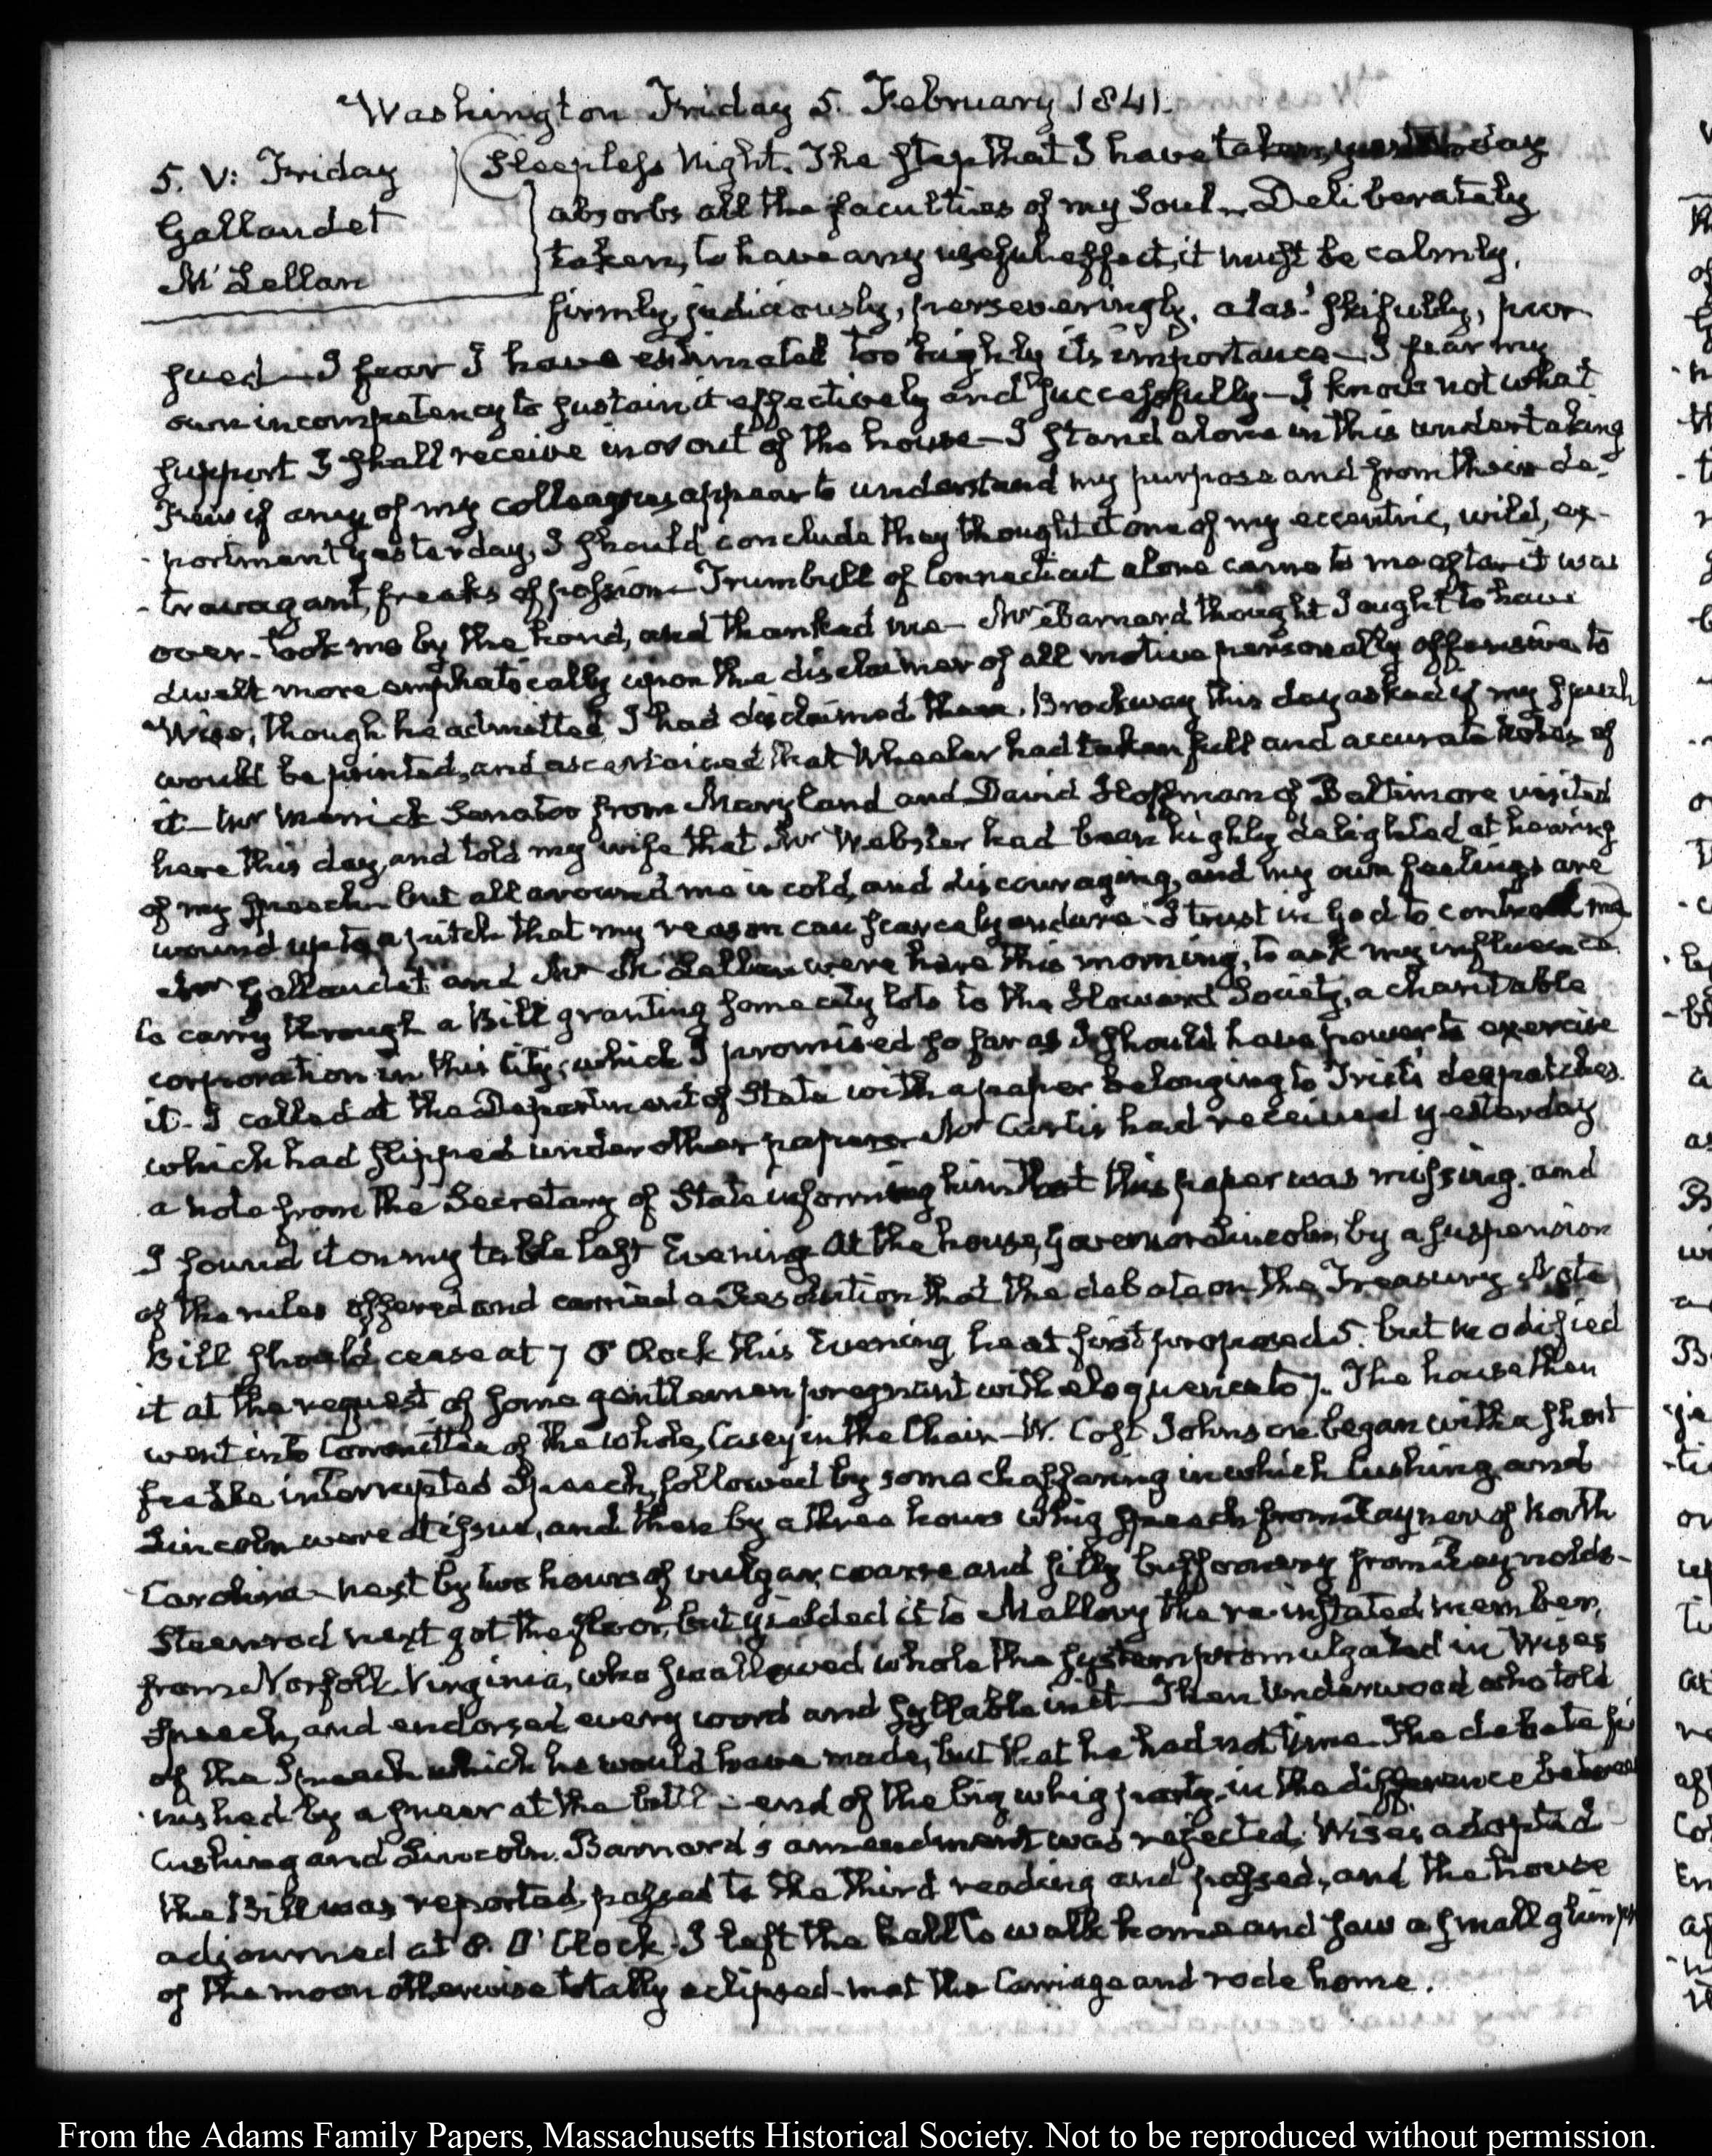 Washington Friday 5. February 1841.
5. V: Friday
Gallaudet
McLellan
Sleepless Night. The step that I have taken yesterday
absorbs all the faculties of my Soul. Deliberately
taken, to have any useful effect, it must be calmly,
firmly, judiciously, perseveringly, alas! skilfully, pur-
sued—I fear I have estimated too highly its importance—I fear my
own incompetency to sustain it effectively and successfully—I know not what
support I shall receive in or out of the house—I stand alone in this undertaking
Few if any of my colleagues appear to understand my purpose and from their de-
-portment yesterday, I should conclude they thought it one of my eccentric, wild, ex-
-travagant, freaks of passion—Trumbull of Connecticut alone came to me after it was
over—took me by the hand, and thanked me—Mr Barnard thought I ought to have
dwelt more emphatically upon the disclaimer of all motive personally offensive to
Wise, though he admitted I had disclaimed them. Brockway this day asked if my speech
would be printed, and ascertained that Wheeler had taken full and accurate notes of
it—Mr Merrick Senator from Maryland and David Hoffman of Baltimore visited
here this day, and told my wife that Mr Webster had been highly delighted at hearing
of my speech—but all around me is cold, and discouraging, and my own feelings are
wound up to a pitch that my reason can scarcely endure—I trust in God to control me
Mr Gallaudet and Mr McLellan were here this morning, to ask my influence
to carry through a Bill granting some city lots to the Howard Society, a charitable
corporation in this City, which I promised so far as I should have power to exercise
it—I called at the Department of State with a paper belonging to Trist's despatches
which had slipped under other papers—Mr Curtis had received yesterday
a note from the Secretary of State informing him that this paper was missing, and
I found it on my table last Evening. At the house, Governor Lincoln, by a suspension
of the rules offered and carried a Resolution that the debate on the Treasury Note
Bill should cease at 7 O'Clock this Evening he at first proposed 5. but modified
it at the request of some gentlemen pregnant with eloquence to 7. The house then
went into Committee of the whole, Casey in the Chair—W. Cost Johnson began with a short
interrupted Speech, followed by some chaffering in which Cushing and
Lincoln were at issue, and then by a three hours Whig speech from Rayner of North
Carolina—next by two hours of vulgar, coarse and silly buffoonery from Reynolds—
Steenrod next got the floor, but yielded it to Mallory the re-instated member,
from Norfolk Virginia, who swallowed whole the system promulgated in Wises
speech, and endorsed every word and syllable in it—Then Underwood who told
of the Speech which he would have made, but that he had not time. The debate fi
nished by a sneer at the butt-end of the big whig party, in the difference between
Cushing and Lincoln. Barnard's amendment was rejected; Wise's adopted—
the Bill was reported, passed to the third reading and passed, and the house
adjourned at 8. O'Clock. I left the hall to walk home and saw a small glimpse
of the moon otherwise totally eclipsed—met the Carriage and rode home.
From the Adams Family Papers, Massachusetts Historical Society. Not to be reproduced without permission.